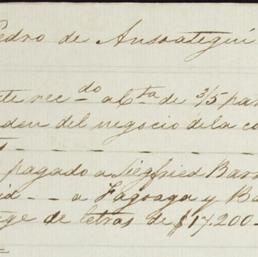 Pedro de Ansoategui
te rec.do a cta de 3/5 par
den del negocio de la co
pagado a Siegfried Bar
id — a Lagoaga y Ba
ge de letras de $17.200-